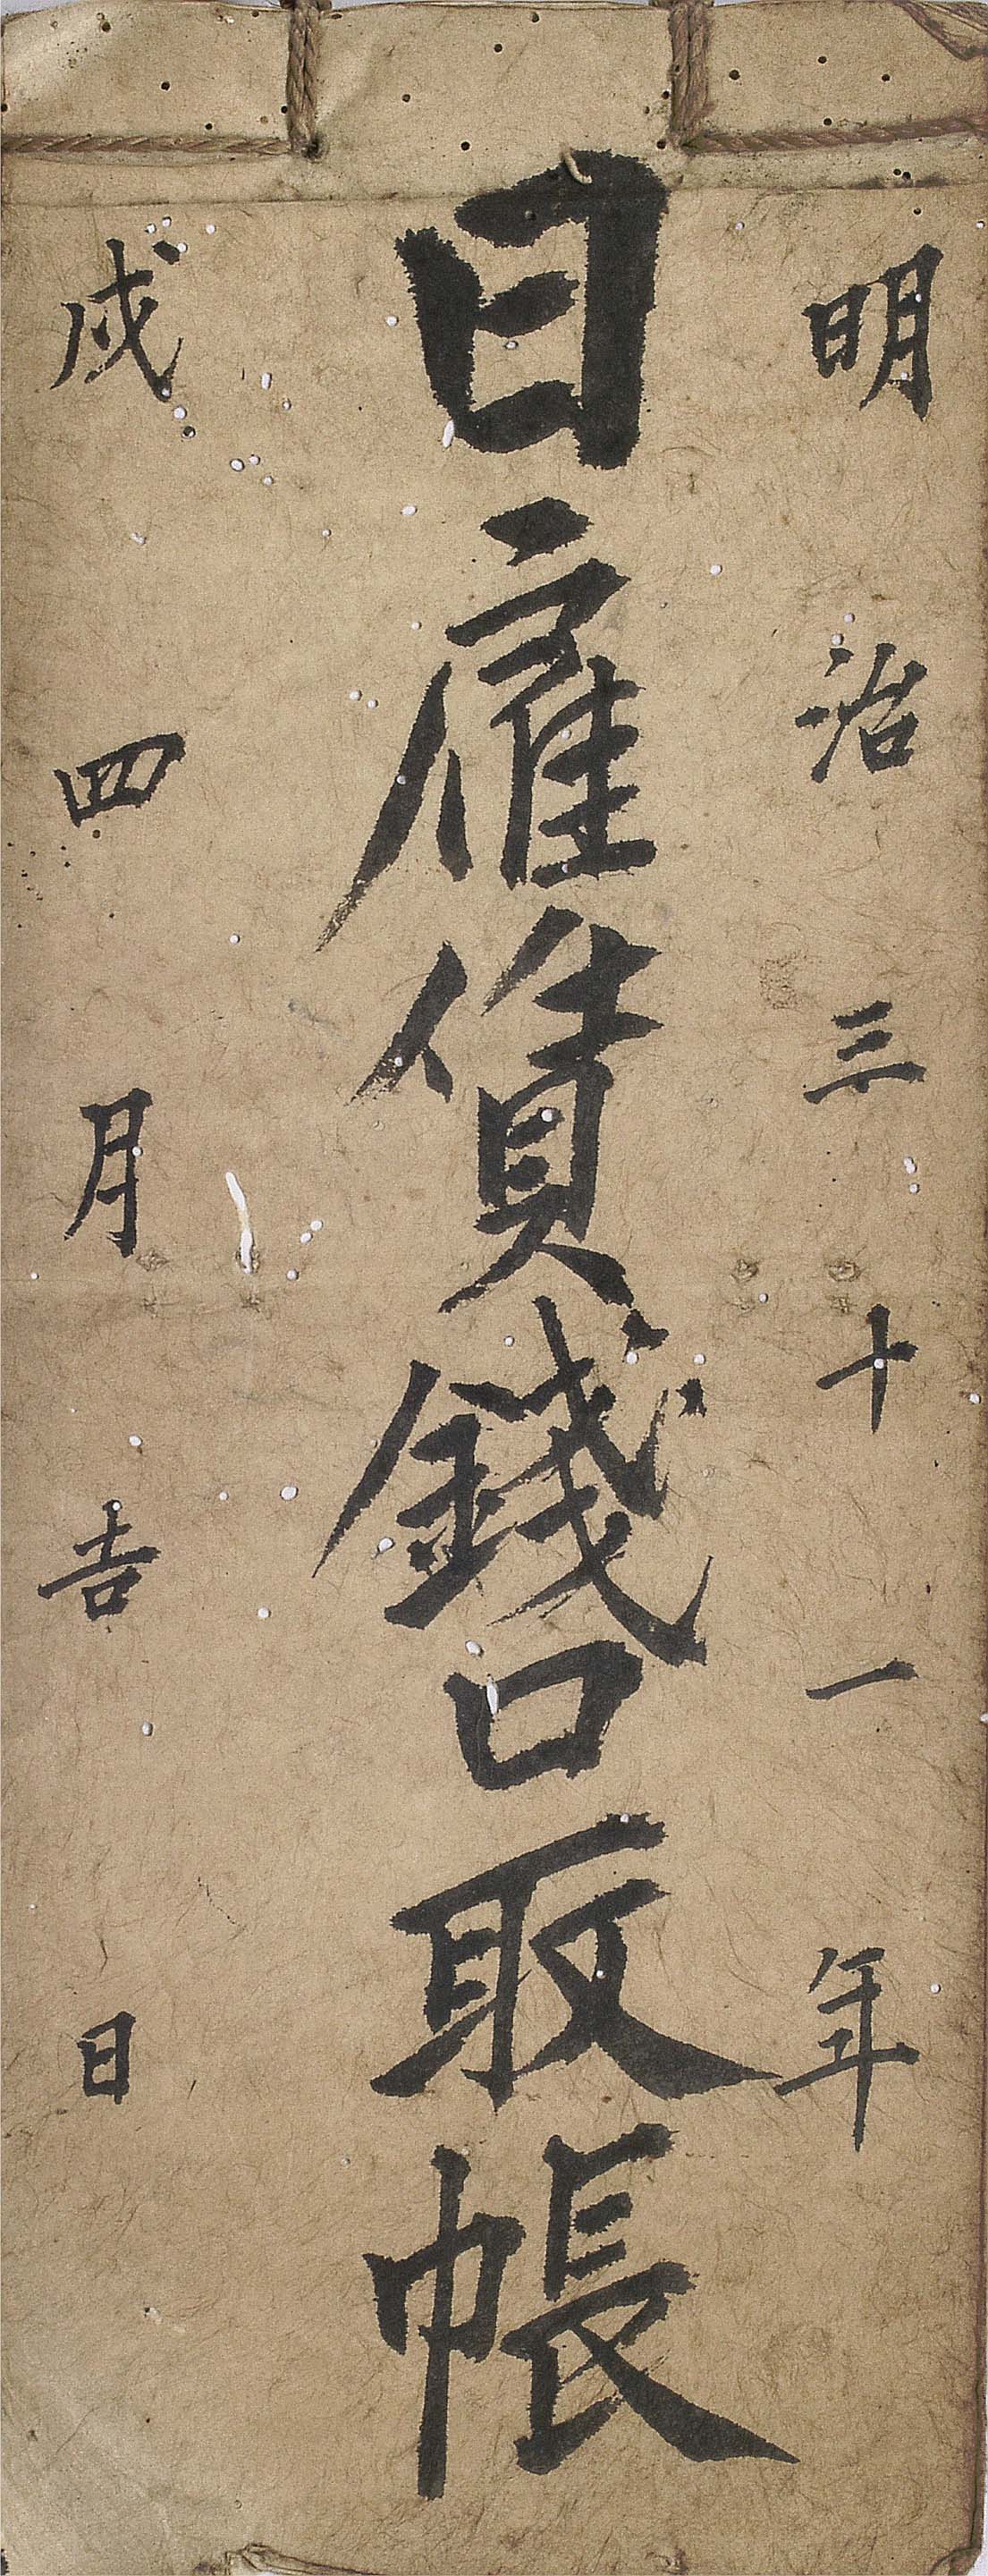 明治三十一年
日雇賃錢口取帳
戌四月吉日